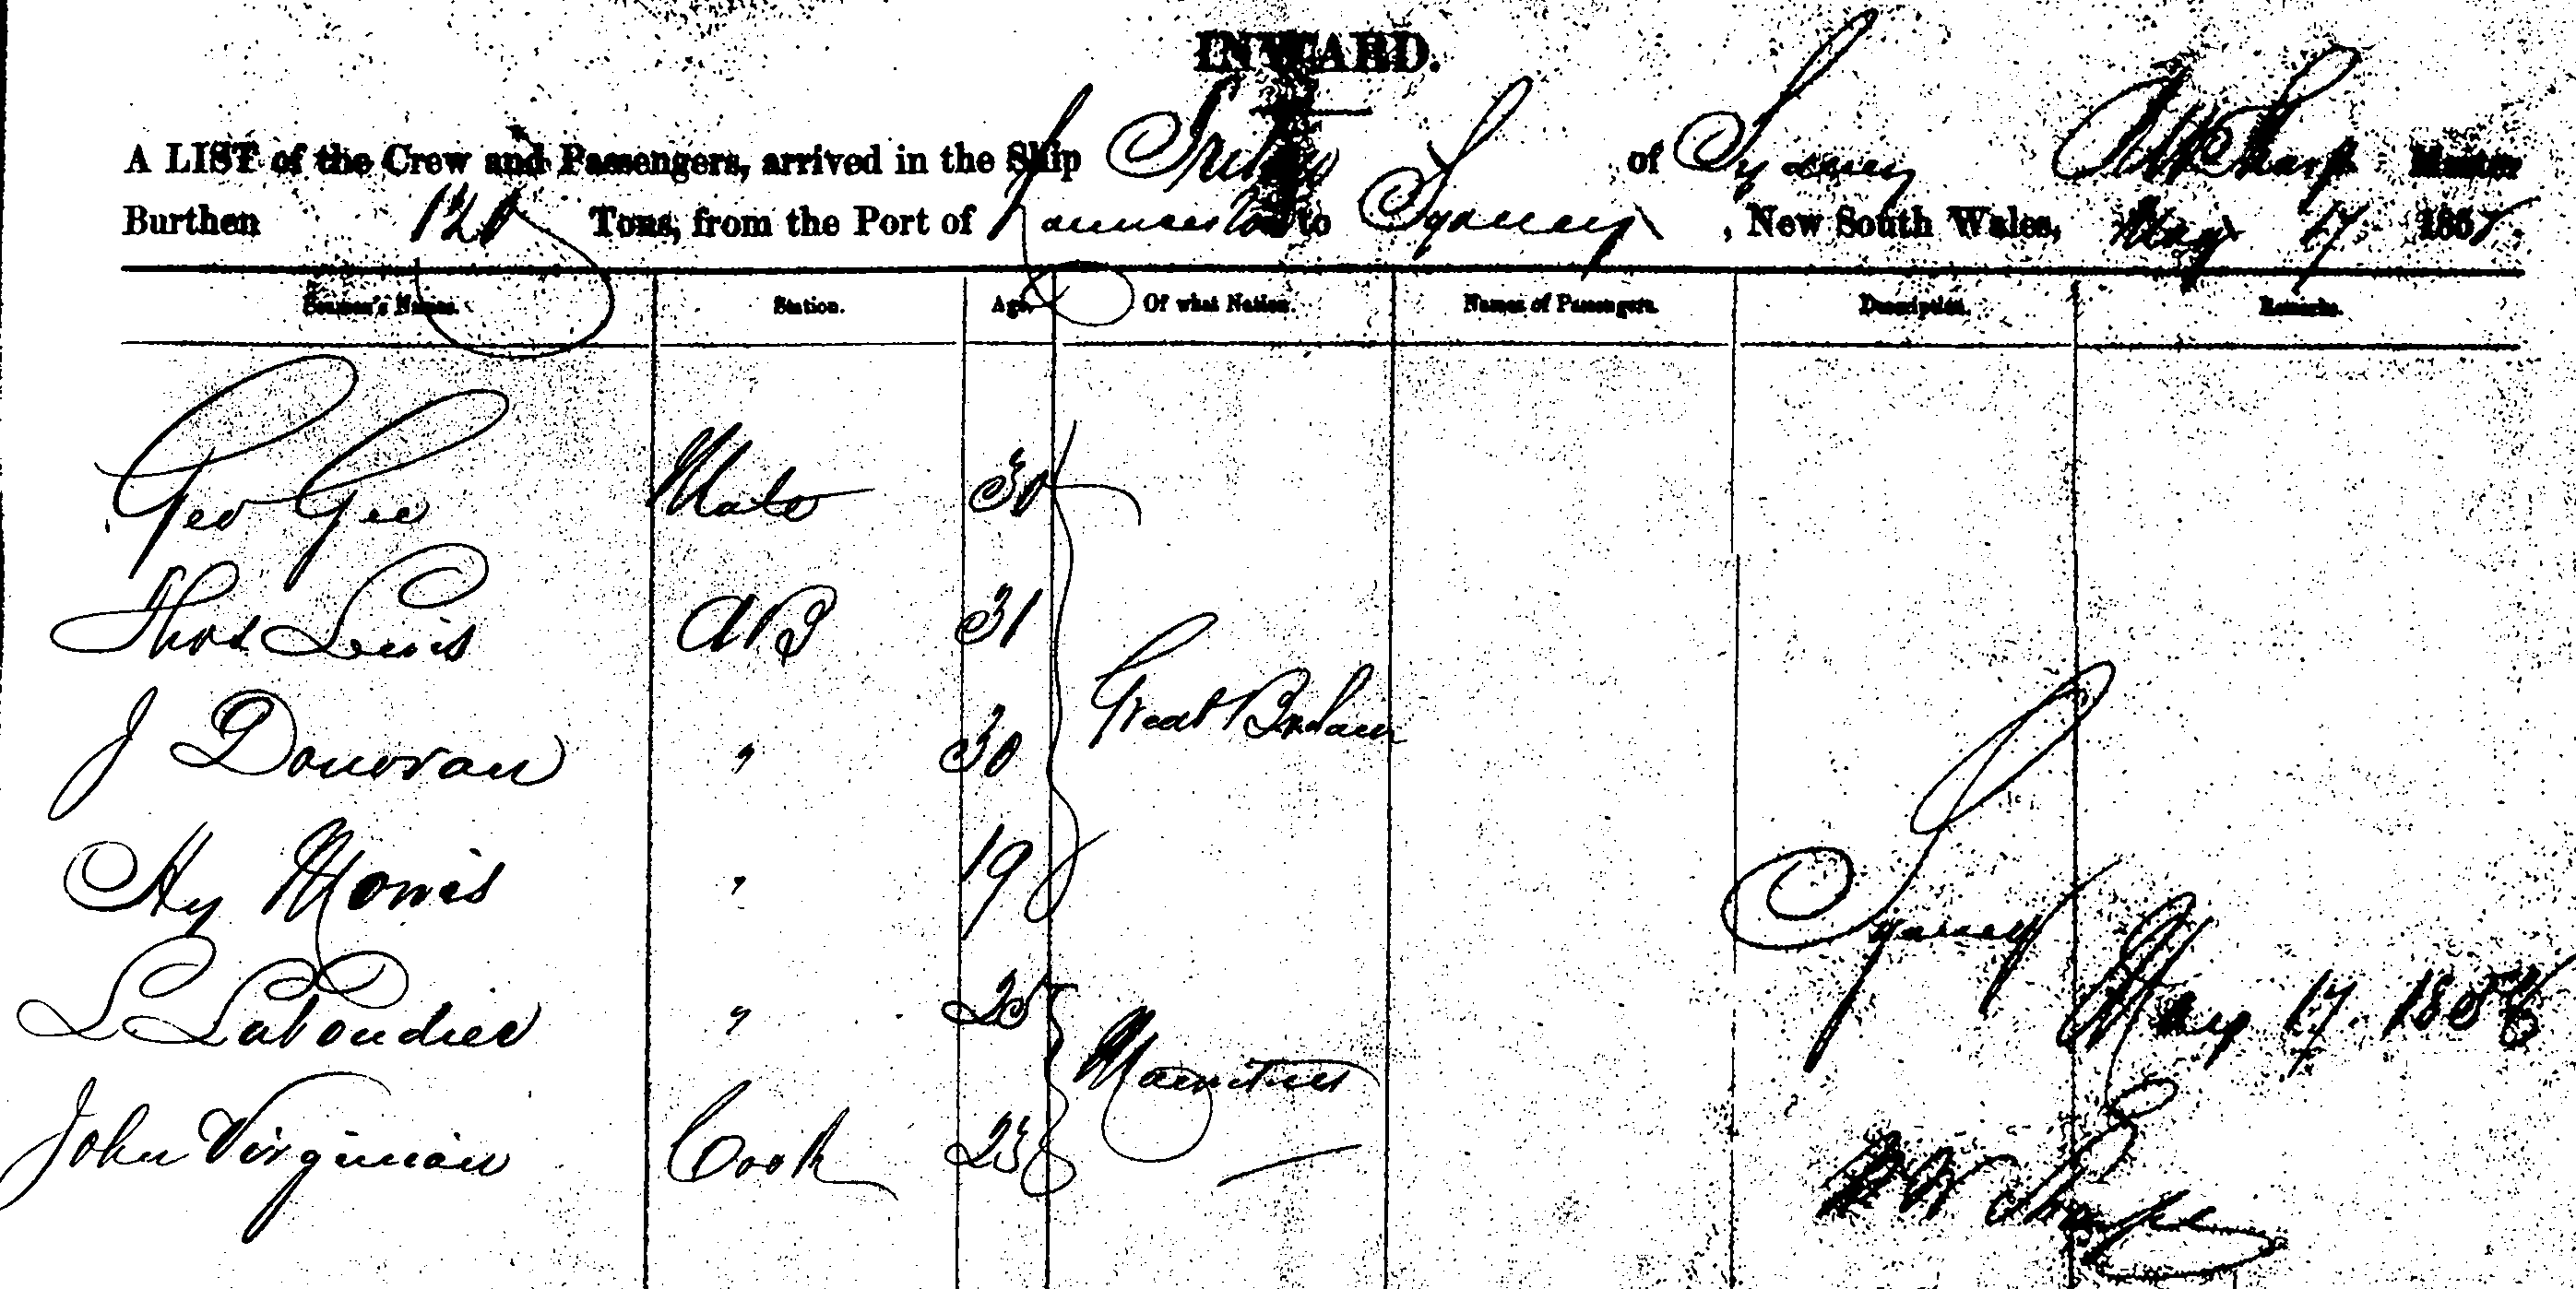 INWARD.
A LIST of the Crew and Passengers, arrived in the Ship of Sydney Sharp Master
Burthen Tons, from the Port of Launceston to Sydney, New South Wales, May 17 185
Seamen's Names. Station. Age. Of what Nation. Names of Passengers. Description. Remarks.
Geo Gee Mate 30
Thos Lewis AB 31
J Donovan " 30 Great Britain
Hy Morris " 19
L " 25
Mauritius
John Virginian Cook 23
Sydney May 17. 185
Sharp